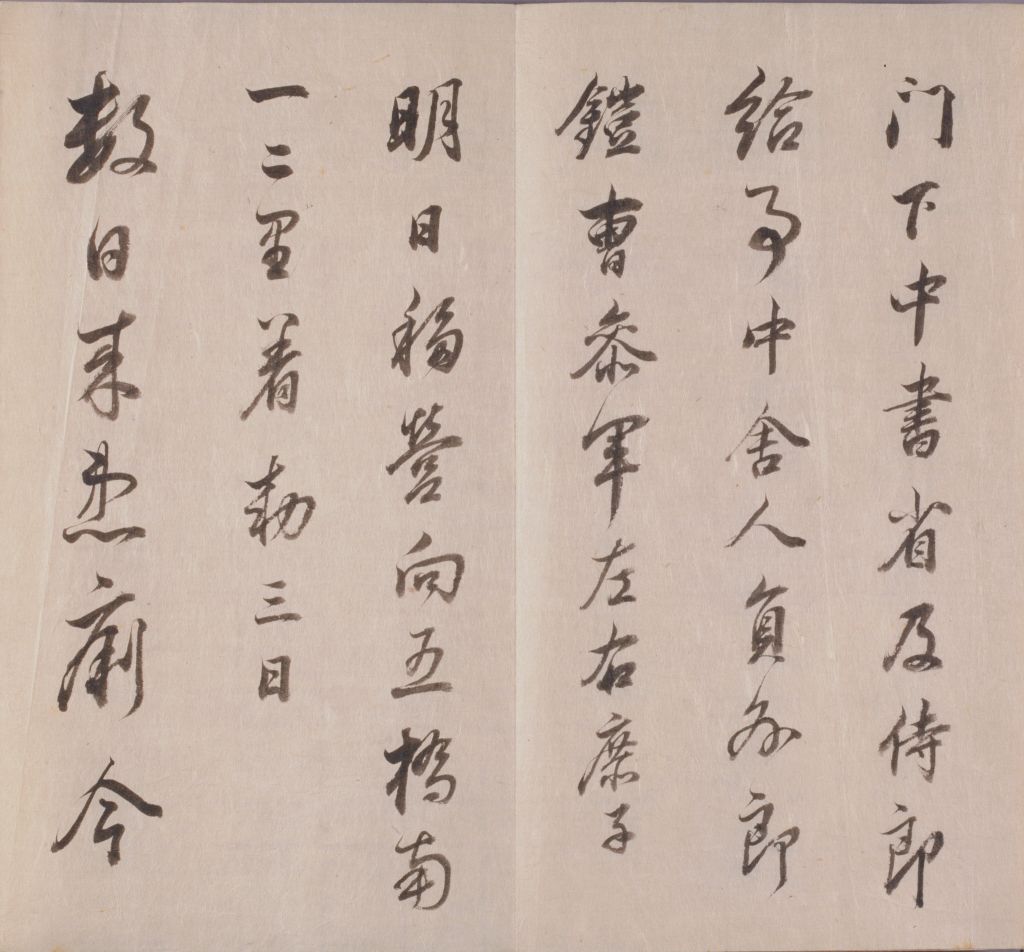 门下中書省及侍郎
給事中舍人員外郎
鎧曹叅軍左右庶子
明日移營向五橋南
一二里着勅三日
数日来患痢今